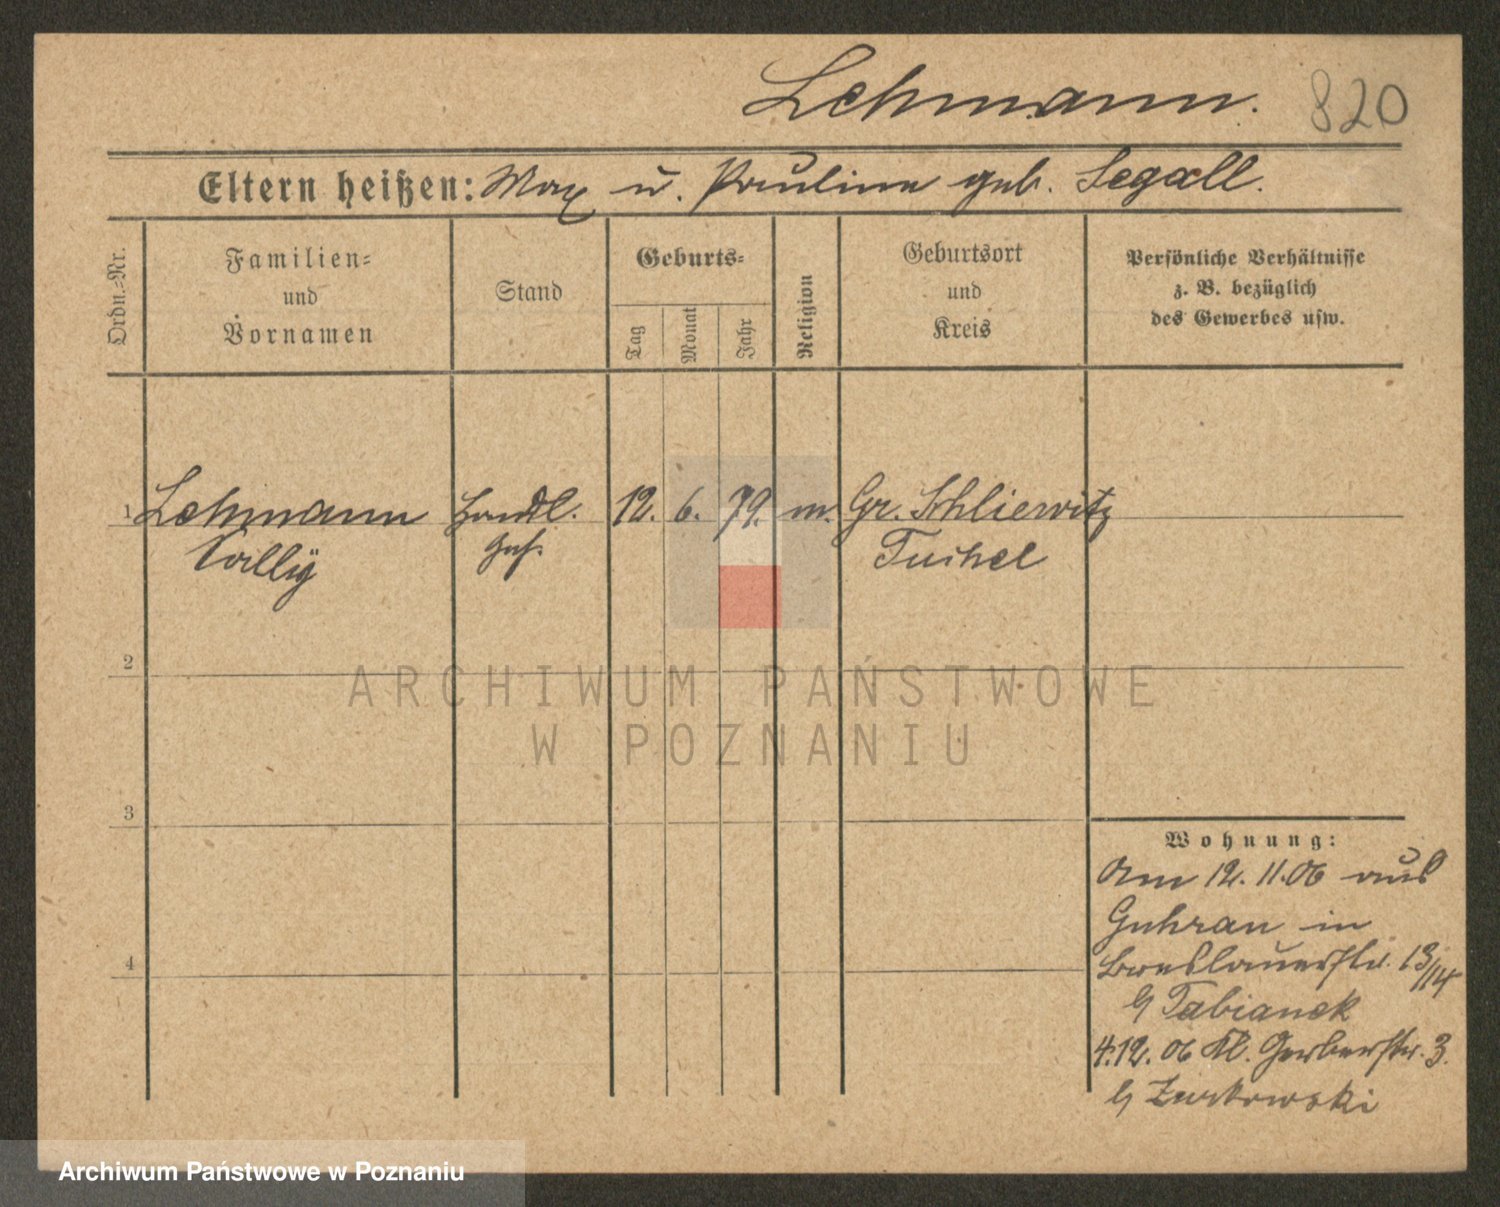 Lehmann. 820
Eltern heißen: Max u. Pauline geb. Segall.
Ordn.-Nr.
Familien-
und
Vornamen
Stand
Geburts-
Tag
Monat
Jahr
Religion
Geburtsort
und
Kreis
Persönliche Verhältnisse
z. B. bezüglich
des Gewerbes usw.
1 Lehmann Handl. 12. 6. 79. m. Gr. Schliewitz
Willy Geh. Tuchel
2
3
4
Wohnung:
Am 12.11.06 aus
Guhrau in
Breslauerstr. 13/14
b/ Fabianek
4.12.06 Kl. Gerberstr. 3.
b/ Zurkowski
ARCHIWUM PAŃSTWOWE
W POZNANIU
Archiwum Państwowe w Poznaniu